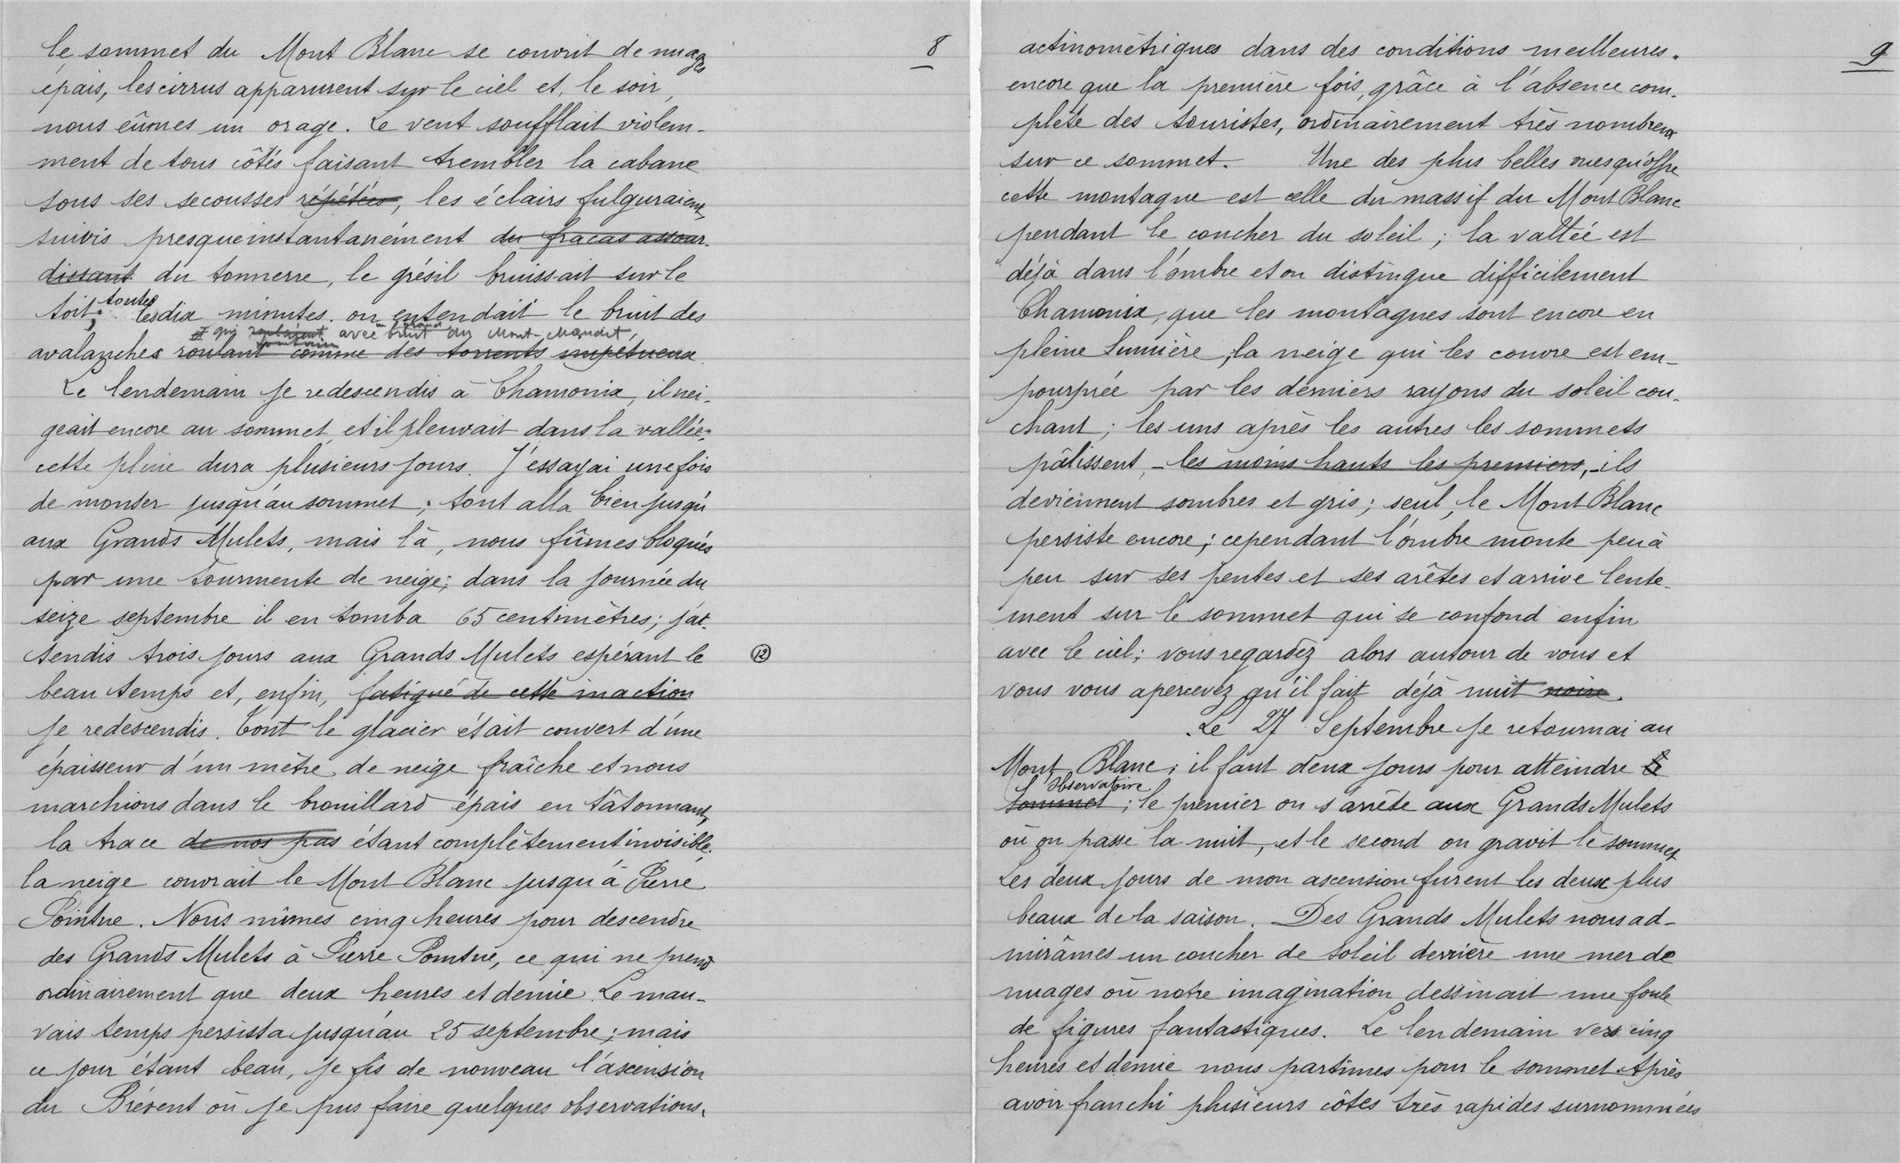 8
le sommet du Mont Blanc se couvrit de nuages
épais, les cirrus apparurent sur le ciel et, le soir,
nous eûmes un orage. Le vent soufflait violem-
ment de tous côtés faisant trembler la cabane
sous ses secousses répétées, les éclairs fulguraient,
suivis presque instantanément du fracas assour-
dissant du tonnerre, le grésil bruissait sur le
toit; toutes les dix minutes on entendait le bruit des
qui roulaient avec un grand bruit du Mont-Maudit,
avalanches roulant comme des torrents impétueux.
Le lendemain je redescendis à Chamonix, il nei-
geait encore au sommet et il pleuvait dans la vallée;
cette pluie dura plusieurs jours. J'essayai une fois
de monter jusqu'au sommet; tout alla bien jusqu'
aux Grands Mulets, mais là, nous fûmes bloqués
par une tourmente de neige; dans la journée du
seize septembre il en tomba 65 centimètres; j'at-
tendis trois jours aux Grands Mulets espérant le
12
beau temps et, enfin, fatigué de cette inaction
je redescendis. Tout le glacier était couvert d'une
épaisseur d'un mètre de neige fraîche et nous
marchions dans le brouillard épais en tâtonnant,
la trace de nos pas étant complètement invisible.
la neige couvrait le Mont Blanc jusqu'à Pierre
Pointue. Nous mîmes cinq heures pour descendre
des Grands Mulets à Pierre Pointue, ce qui ne prend
ordinairement que deux heures et demie. Le mau-
vais temps persista jusqu'au 25 septembre; mais
ce jour étant beau, je fis de nouveau l'ascension
du Brévent où je pus faire quelques observations
9
actinométriques dans des conditions meilleures
encore que la première fois, grâce à l'absence com-
plète des touristes, ordinairement très nombreux
sur ce sommet. Une des plus belles vues qu'offre
cette montagne est celle du massif du Mont Blanc
pendant le coucher du soleil; la vallée est
déjà dans l'ombre et on distingue difficilement
Chamonix, que les montagnes sont encore en
pleine lumière, la neige qui les couvre est em-
pourprée par les derniers rayons du soleil cou-
chant; les uns après les autres les sommets
pâlissent, - les moins hauts les premiers, - ils
deviennent sombres et gris; seul, le Mont Blanc
persiste encore; cependant l'ombre monte peu à
peu sur ses pentes et ses arêtes et arrive lente-
ment sur le sommet qui se confond enfin
avec le ciel; vous regardez alors autour de vous et
vous vous apercevez qu'il fait déjà nuit noire.
Le 27 Septembre je retournai au
Mont Blanc; il faut deux jours pour atteindre le
l'observatoire
sommet; le premier on s'arrête aux Grands Mulets
où on passe la nuit, et le second on gravit le sommet
Les deux jours de mon ascension furent les deux plus
beaux de la saison. Des Grands Mulets nous ad-
mirâmes un coucher de soleil derrière une mer de
nuages où notre imagination dessinait une foule
de figures fantastiques. Le lendemain vers cinq
heures et demie nous partîmes pour le sommet. Après
avoir franchi plusieurs côtes très rapides surnommées